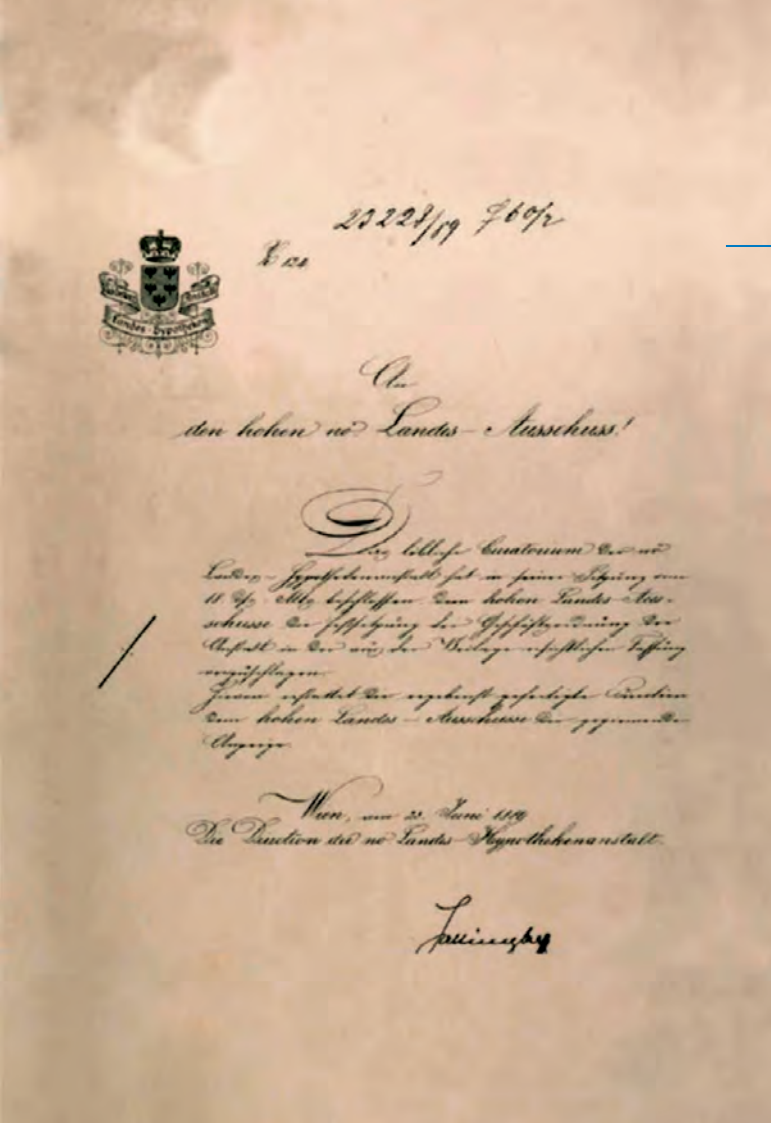 23228/89
Landes-Hypotheken
An
den hohen nö Landes-Ausschuss!
Das löbliche Curatorium der nö
Landes-Hypothekenanstalt hat in seiner Sitzung vom
beschlossen dem hohen Landes-Aus-
schusse die Festsetzung der Geschäftsordnung der
Anstalt in der aus der Beilage ersichtlichen Fassung
vorzuschlagen.
Hievon erstattet die ergebenst gefertigte Direction
dem hohen Landes-Ausschusse die geziemende
Anzeige.
Wien, am 23. Juni 1889
Die Direction der nö Landes-Hypothekenanstalt.